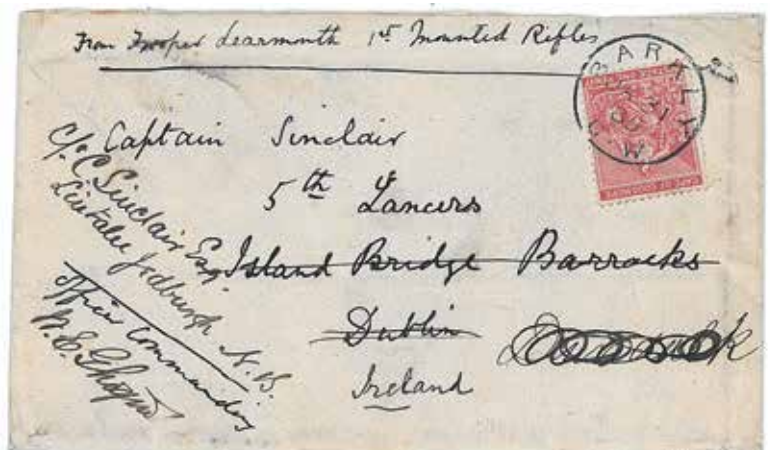 From Trooper Learmonth 1st Mounted Rifles
Captain Sinclair
5th Lancers
Island Bridge Barracks
Dublin
Ireland
c/o C. Sinclair Esq.
Lintalee Jedburgh N.B.
Officer Commanding
BARKLY